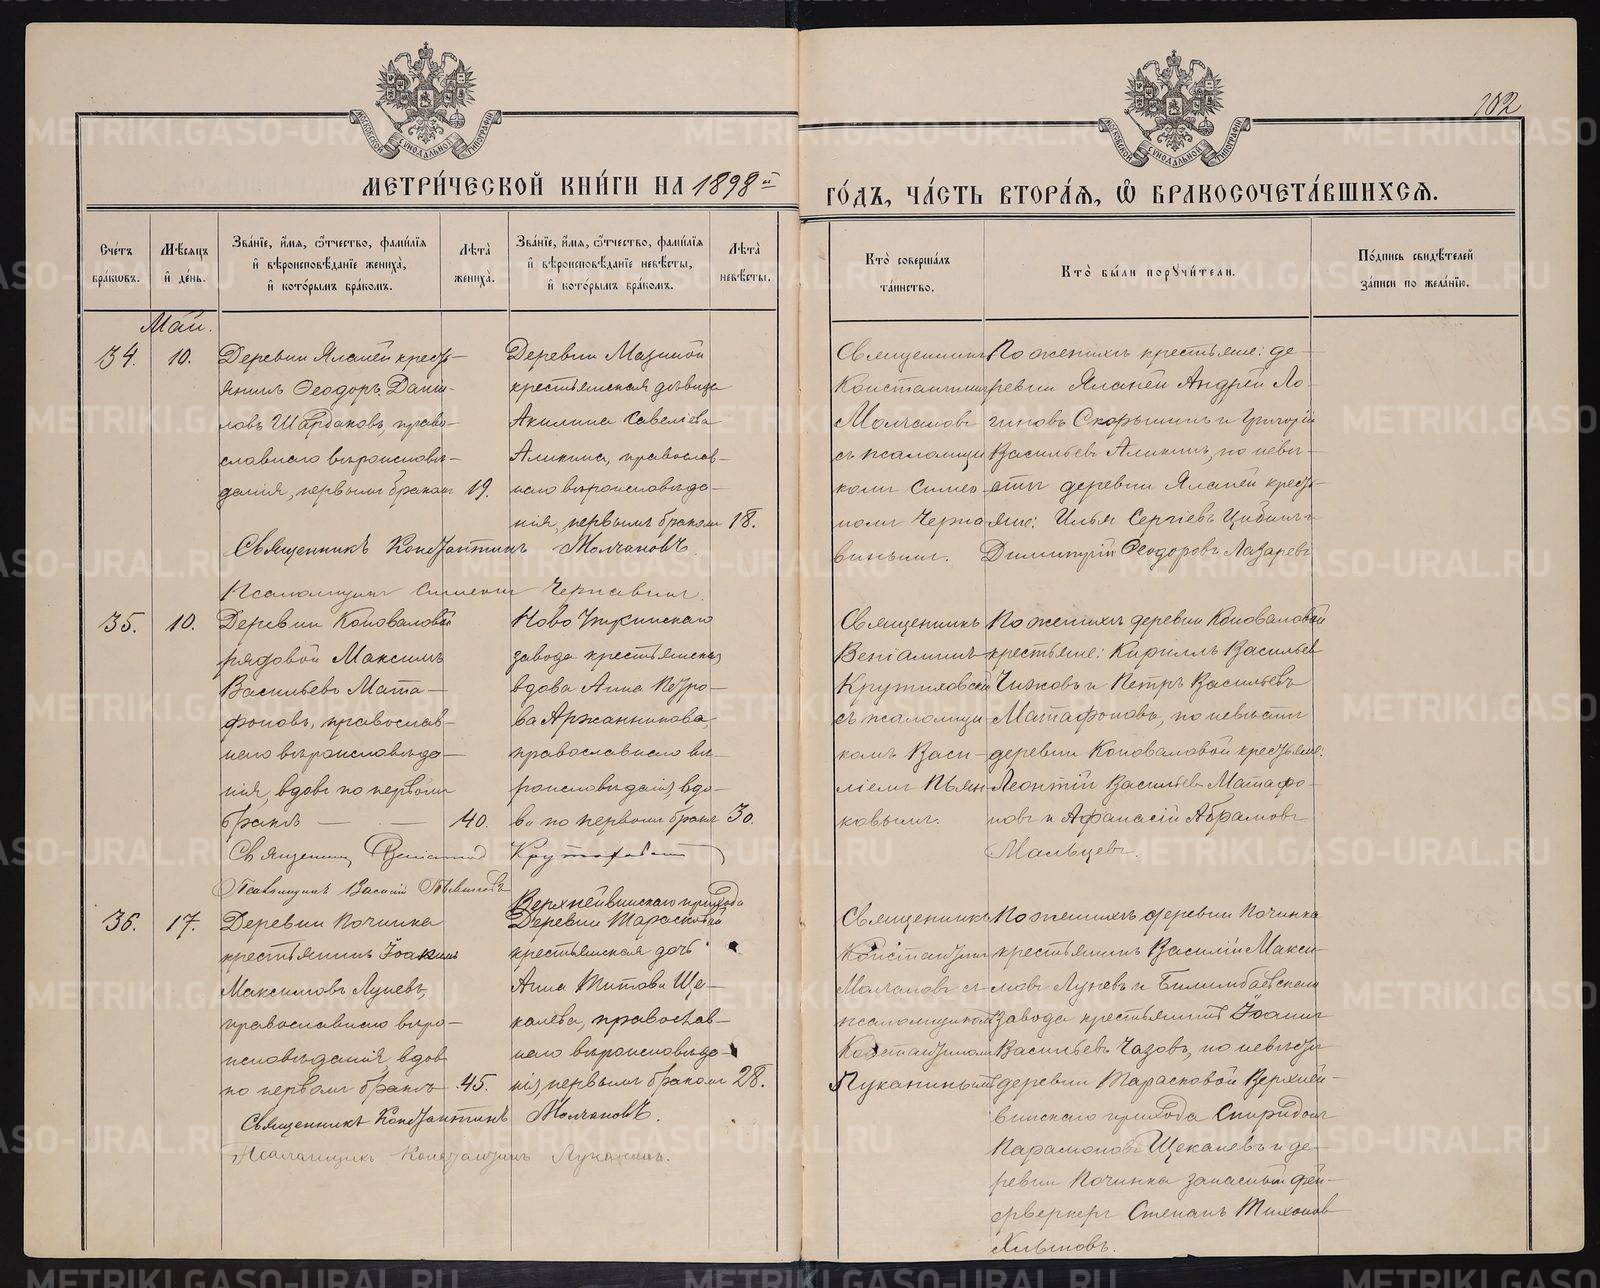 102
МЕТРИ́ЧЕСКОЙ КНИ́ГИ НА 1898й
ГО́ДЪ, ЧА́СТЬ ВТОРА́Я, Ѿ БРАКОСОЧЕТА́ВШИХСЯ.
МОСКОВСКОЙ СѴНОДАЛЬНОЙ ТИПОГРАФІИ
МОСКОВСКОЙ СѴНОДАЛЬНОЙ ТИПОГРАФІИ
Сче́тъ бра́ковъ.
Мѣ́сяцъ и де́нь.
Зва́нїе, и́мя, ѻ́тчество, фами́лїя и вѣроисповѣ́данїе жениха̀, и кото́рымъ бра́комъ.
Лѣ́та жениха̀.
Зва́нїе, и́мя, ѻ́тчество, фами́лїя и вѣроисповѣ́данїе невѣ́сты, и кото́рымъ бра́комъ.
Лѣ́та невѣ́сты.
Кто̀ соверша́лъ та́инство.
Кто̀ бы́ли порꙋчи́тели.
По́дпись свидѣ́телей за́писи по жела́нїю.
Май.
34.
10.
Деревни Яланей кресть-
янинъ Ѳеодоръ Дани-
ловъ Шардаковъ, право-
славнаго вѣроисповѣ-
данія, первымъ бракомъ
19.
Деревни Мазиной
крестьянская дѣвица
Акилина Савеліева
Аликина, православ-
наго вѣроисповѣда-
нія, первымъ бракомъ
18.
Священникъ
Константинъ
Молчановъ
съ псаломщи
комъ Симео-
номъ Черна
винымъ.
По женихѣ крестьяне: де-
ревни Яланей Андрей Ло-
гиновъ Скорынинъ и Григорій
Васильевъ Аликинъ, по невѣ-
стѣ деревни Яланей кресть-
яне: Илья Сергіевъ и
Димитрій Ѳеодоровъ Лазаревъ
Священникъ Константинъ Молчановъ.
Псаломщикъ Симеонъ Чернавинъ.
35.
10.
Деревни Коноваловой
рядовой Максимъ
Васильевъ Мата-
фоновъ, православ-
наго вѣроисповѣда-
нія, вдовъ по первомъ
бракѣ — —
40.
Ново Уткинскаго
завода крестьянская
вдова Анна Петро-
ва Аржанникова,
православнаго вѣ-
роисповѣданія, вдо-
ва по первомъ бракѣ
30.
Священникъ
Веніаминъ
Крутиховскій
съ псаломщи
комъ Васи-
ліемъ Пьян
ковымъ.
По женихѣ деревни Коноваловой
крестьяне: Кириллъ Васильевъ
Чижовъ и Петръ Васильевъ
Матафоновъ, по невѣстѣ
деревни Коноваловой крестьяне:
Леонтій Васильевъ Матафо-
новъ и Афанасій Абрамовъ
Мальцевъ.
Священникъ Веніаминъ Крутиховскій
Псаломщикъ Василій Пьянковъ
36.
17.
Деревни Починка
крестьянинъ Іоакимъ
Максимовъ Луневъ,
православнаго вѣро-
исповѣданія, вдовъ
по первомъ бракѣ
45.
Верхнейвинскаго прихода
Деревни Тарасковой
крестьянская дочь
Анна Титова Ще-
калева, православ-
наго вѣроисповѣда-
нія, первымъ бракомъ
28.
Священникъ
Константинъ
Молчановъ съ
псаломщикомъ
Константиномъ
Луканинымъ
По женихѣ деревни Починка
крестьянинъ Василій Макси-
мовъ Луневъ и Билимбаевскаго
завода крестьянинъ Іоаннъ
Васильевъ Чазовъ, по невѣстѣ
деревни Тарасковой Верхней-
винскаго прихода Спиридонъ
Парамоновъ Щекалевъ и де-
ревни Починка запасный фей-
ерверкеръ Степанъ Тихоновъ
Священникъ Константинъ Молчановъ.
Псаломщикъ Константинъ Луканинъ.
METRIKI.GASO-URAL.RU